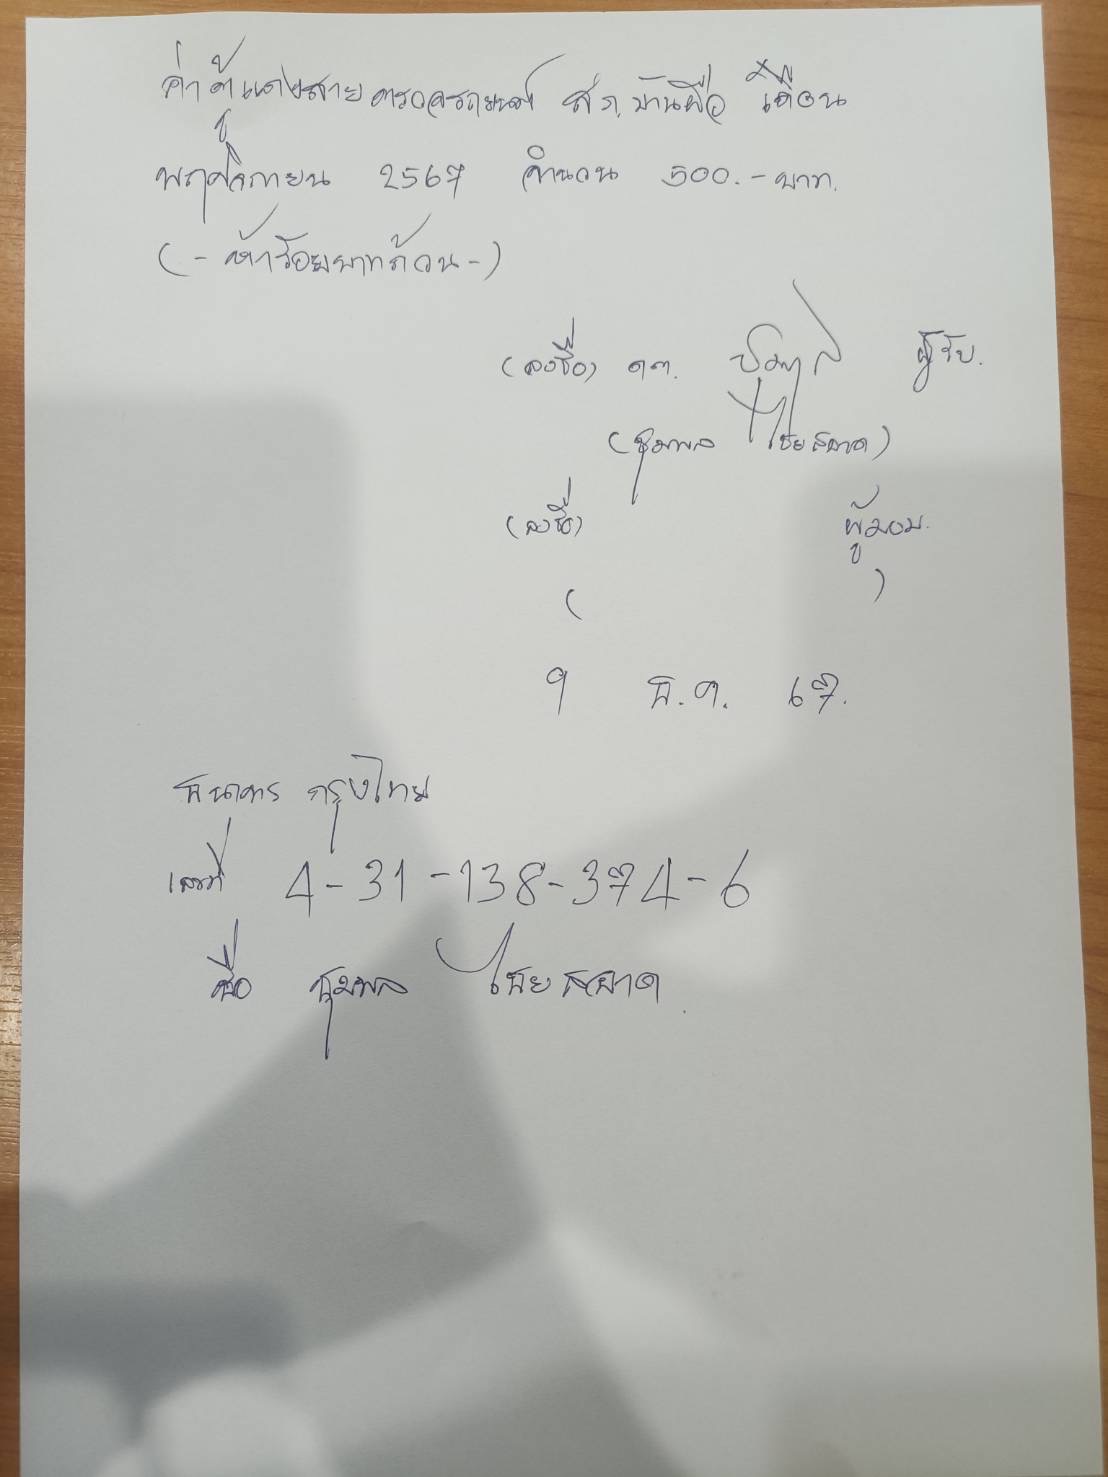 ค่าตู้แดงสายตรวจรถยนต์ สภ.บ้านผือ เดือน
พฤศจิกายน 2567 จำนวน 500.- บาท.
(- ห้าร้อยบาทถ้วน -)
(ลงชื่อ) ดต. ผู้รับ.
(ชุมพล ไชยสอาด)
(ลงชื่อ) ผู้มอบ.
( )
9 ธ.ค. 67.
ธนาคาร กรุงไทย
เลขที่ 4-31-138-374-6
ชื่อ ชุมพล ไชยสอาด